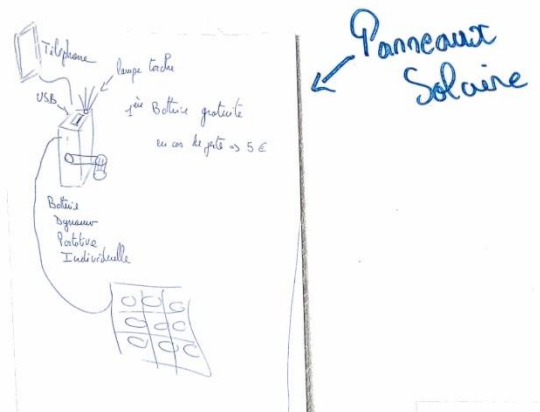 Panneaux
Solaire
Téléphone
lampe torche
USB
1ère Batterie gratuite
en cas de perte => 5 €
Batterie
Dynamo
Portative
Individuelle